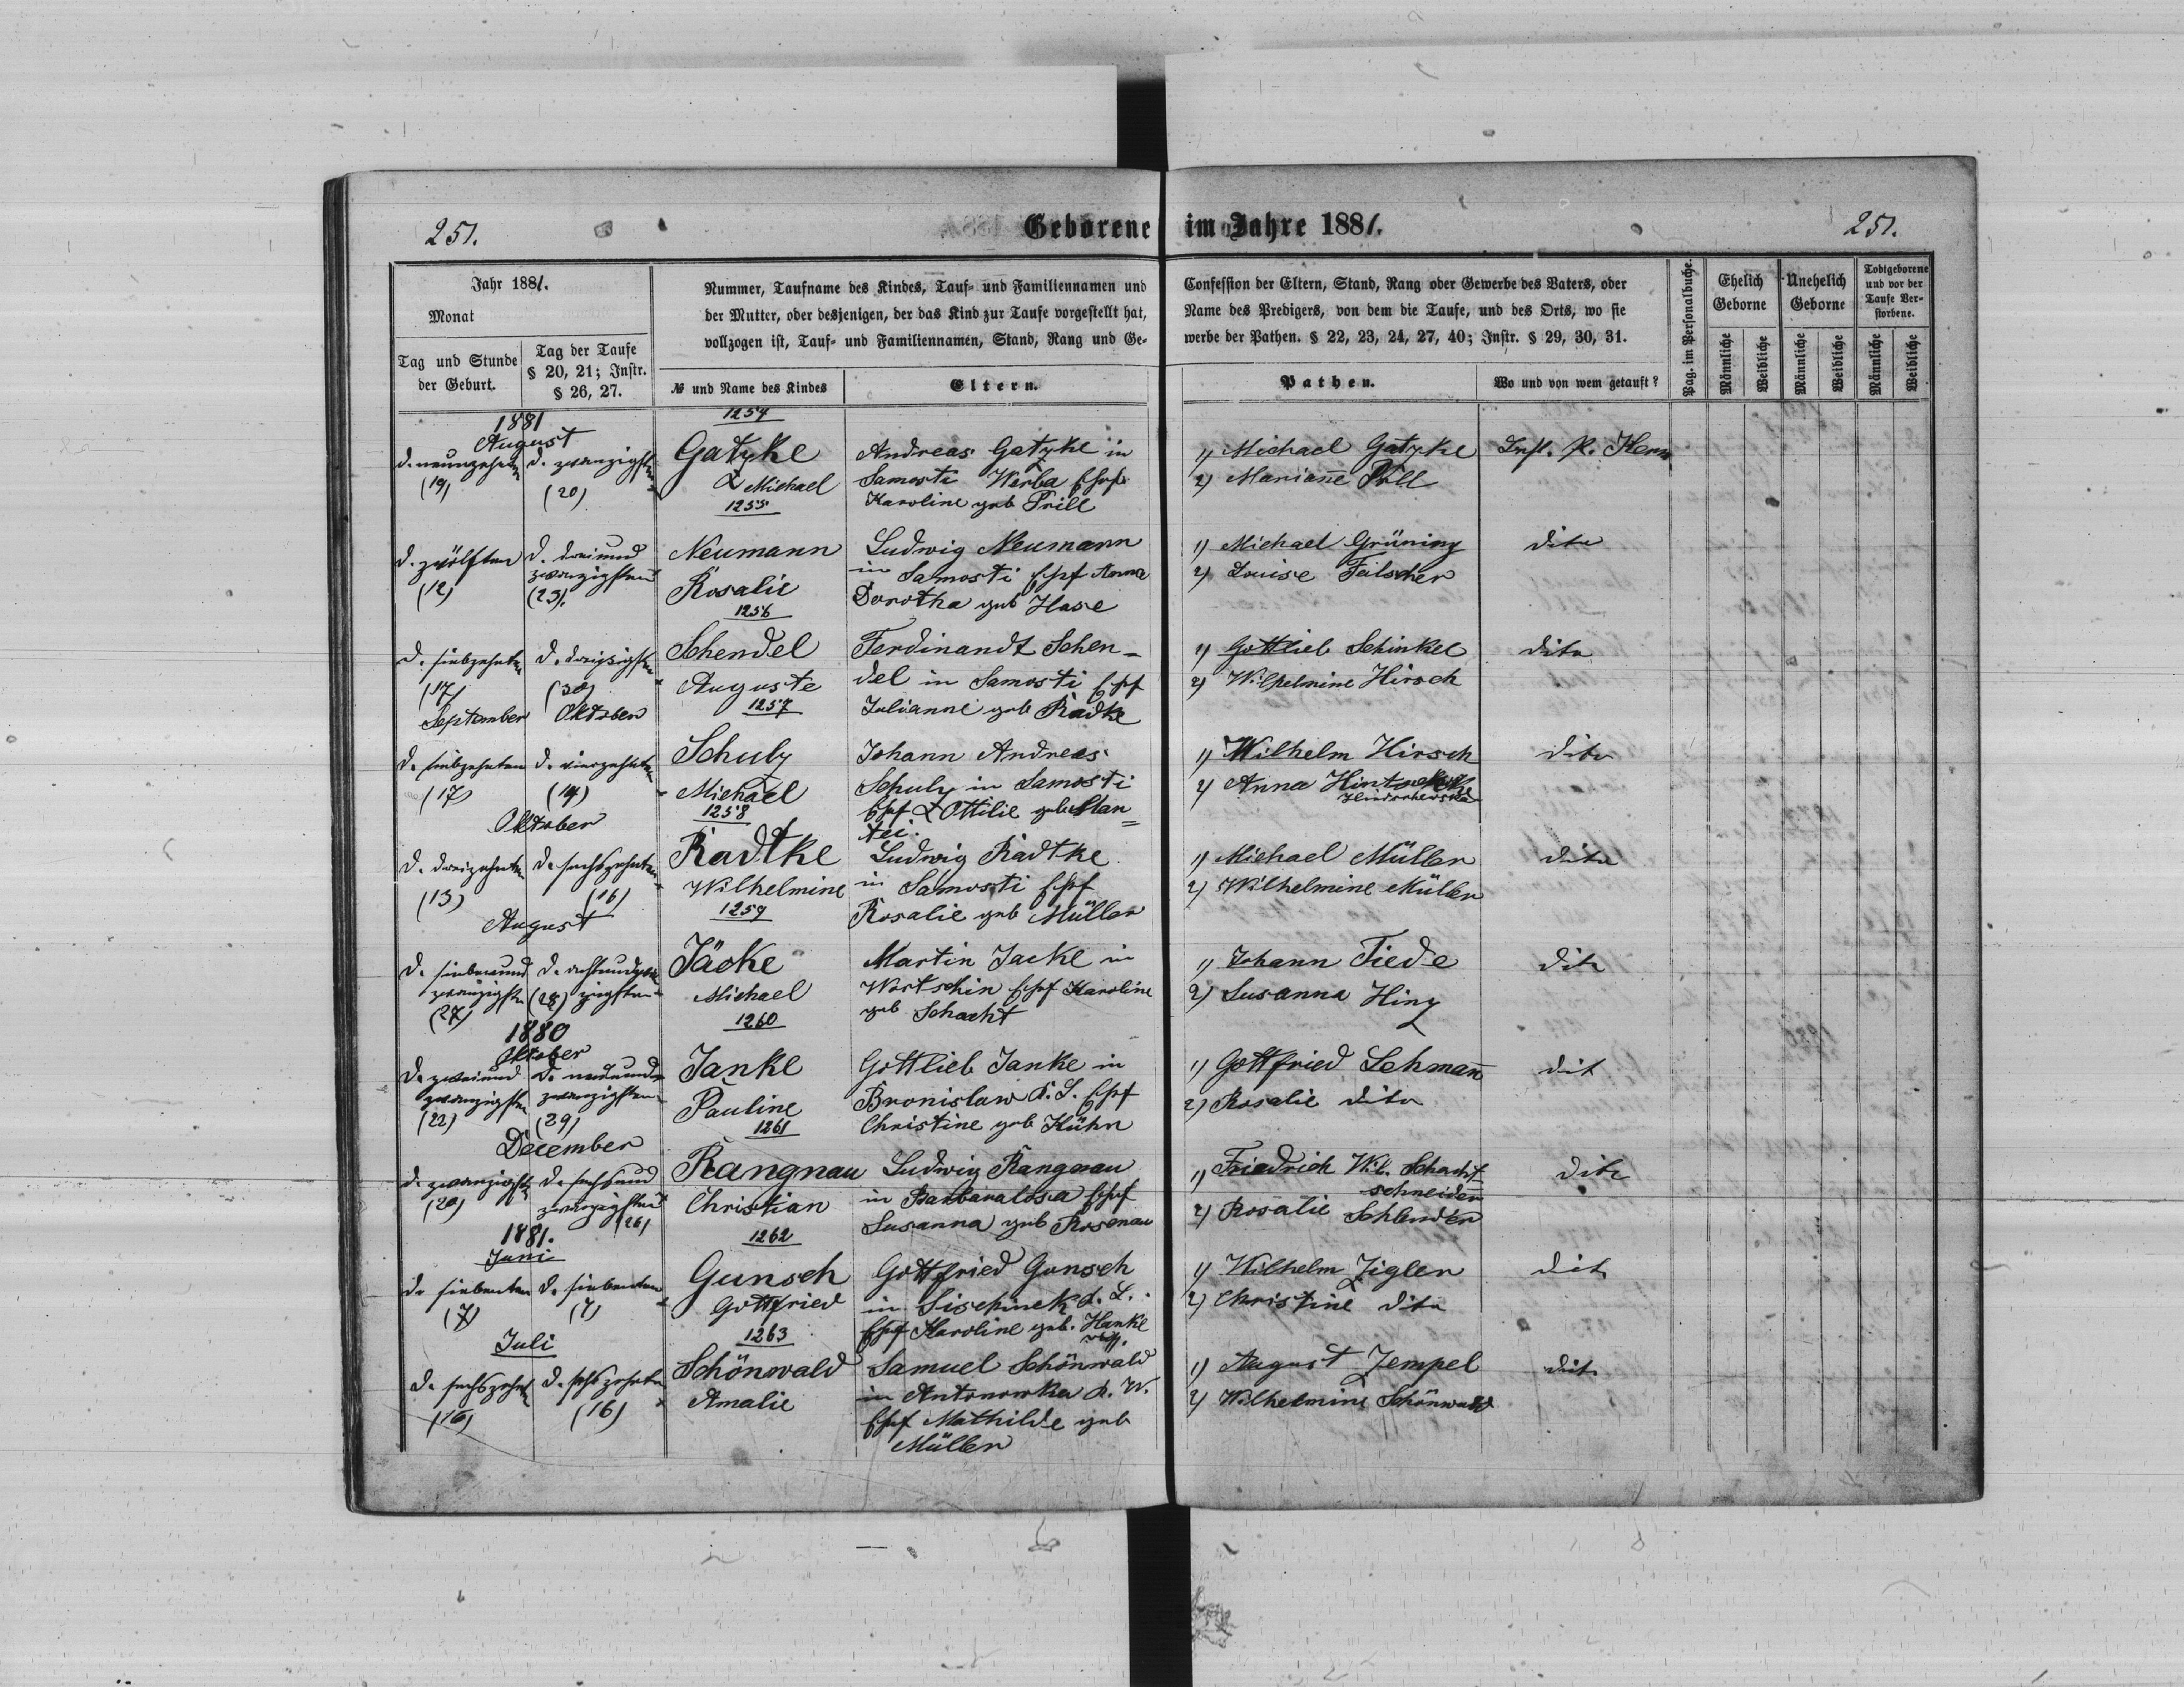 251.
Geborene im Jahre 1881.
251.
Jahr 1881.
Monat
Tag und Stunde der Geburt.
Tag der Taufe § 20, 21; Instr. § 26, 27.
Nummer, Taufname des Kindes, Tauf- und Familiennamen und
der Mutter, oder desjenigen, der das Kind zur Taufe vorgestellt hat,
vollzogen ist, Tauf- und Familiennamen, Stand, Rang und Ge-
№ und Name des Kindes
Eltern.
Confession der Eltern, Stand, Rang oder Gewerbe des Vaters, oder
Name des Predigers, von dem die Taufe, und des Orts, wo sie
werbe der Pathen. § 22, 23, 24, 27, 40; Instr. § 29, 30, 31.
Pathen.
Wo und von wem getauft?
Pag. im Personalbuche.
Ehelich Geborne
Unehelich Geborne
Todtgeborene und vor der Taufe Verstorbene.
Männliche
Weibliche
Männliche
Weibliche
Männliche
Weibliche
1881
August
d. neunzehnten (19)
d. zwanzigsten (20)
1254
Gatzke
Michael
Andreas Gatzke in
Samosti Werba Ehefr
Karoline geb Prill
1) Michael Gatzke
2) Marianne Prill
Past. K. Kern
d. zwölften (12)
d. dreiund
zwanzigsten (23).
1255
Neumann
Rosalie
Ludwig Neumann
in Samosti Ehf Anna
Dorotha geb Hase
1) Michael Grüning
2) Louise Fälscher
dito
d. siebzehnten (17)
d. dreißigsten (30)
1256
Schendel
Auguste
Ferdinandt Schen-
del in Samosti Ehf
Julianne geb Radke
1) Gottlieb Schinkel
2) Wilhelmine Hirsch
dito
September
Oktober
d. siebzehnten (17)
d. vierzehnten (14)
1257
Schulz
Michael
Johann Andreas
Schulz in Samosti
Ehf Ottilie geb Man=
tei.
1) Wilhelm Hirsch
2) Anna
dito
Oktober
d. dreizehnten (13)
d. sechszehnten (16)
1258
Radtke
Wilhelmine
Ludwig Radtke
in Samosti Ehf
Rosalie geb Müller
1) Michael Müller
2) Wilhelmine Müller
dito
August
d. siebenund
zwanzigsten (27)
d. achtundzwan
zigsten (28)
1259
Jäcke
Michael
Martin Jacke in
Wortschin Ehf Karoline
geb Schacht
1) Johann Tiede
2) Susanna Hinz
dito
1880
Oktober
d. zweiund
zwanzigsten (22)
d. neunund
zwanzigsten (29)
1260
Janke
Pauline
Gottlieb Janke in
Bronislaw K. L. Ehf
Christine geb Kühn
1) Gottfried Lehmann
2) Rosalie dito
dit
December
d. zwanzigsten (20)
d. sechsund
zwanzigsten (26)
1261
Rangnau
Christian
Ludwig Rangnau
in Ehf
Susanna geb Rosenau
1) Friedrich Wil. Schacht-
schneider
2) Rosalie Schlender
dito
1881.
Juni
d. siebenten (7)
d. siebenten (7)
1262
Gunsch
Gottfried
Gottfried Gunsch
in K. L.
Ehf Karoline geb. Hanke
1) Wilhelm Zigler
2) Christine dito
dit
Juli
d. sechszehnten (16)
d. sechszehnten (16)
1263
Schönwald
Amalie
Samuel Schönwald
in Antonowka K. W.
Ehf Mathilde geb
Müller
1) August Zempel
2) Wilhelmine Schönwald
dit